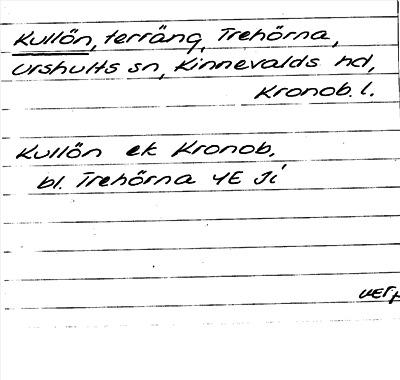 Kullön, terräng, Trehörna,
Urshults sn, Kinnevalds hd,
Kronob. l.
Kullön ek Kronob.
bl. Trehörna 4E Ji